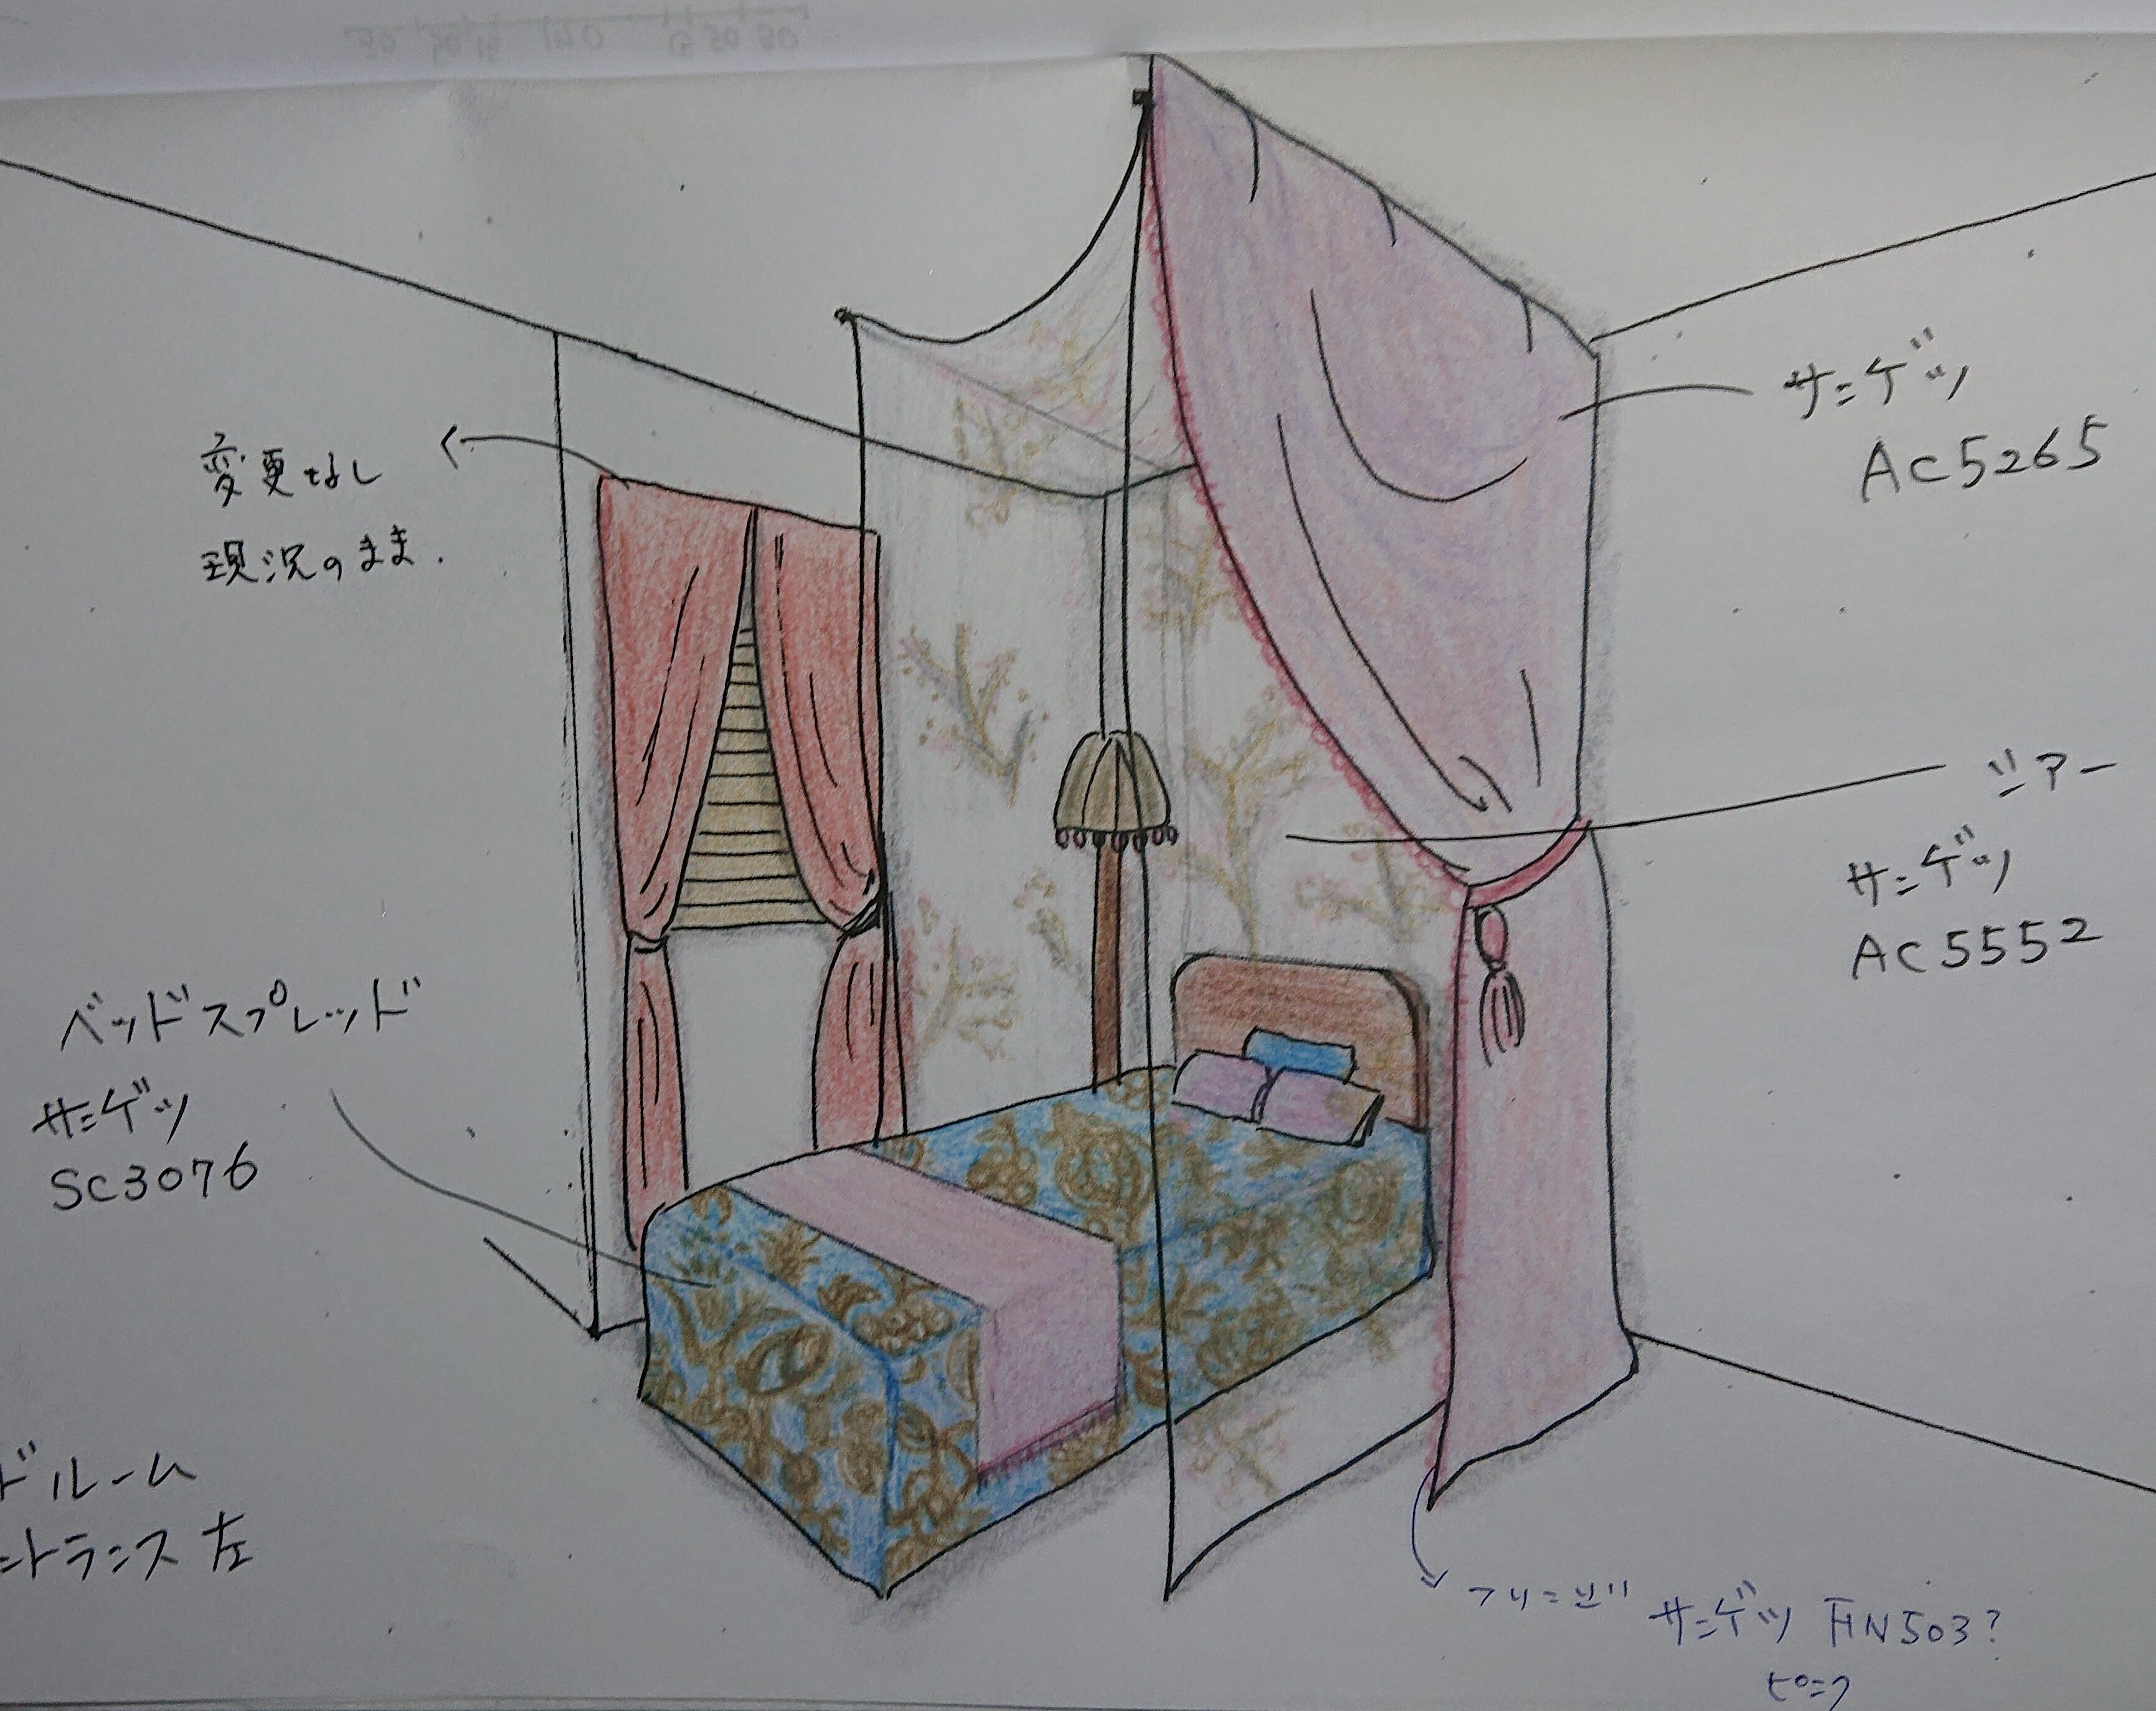 変更なし
現況のまま.
サンゲツ
AC5265
シアー
サンゲツ
AC5552
ベッドスプレッド
サンゲツ
SC3076
ドルーム
ントランス 左
フリンジ サンゲツ FHN503?
ピンク